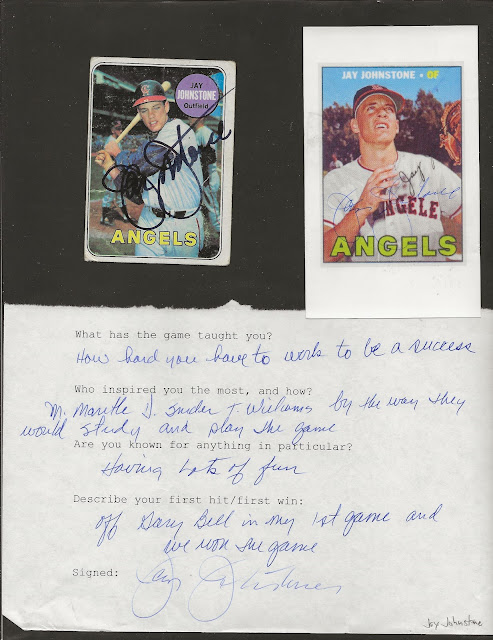 JAY
JOHNSTONE
Outfield
Jay Johnstone
ANGELS
JAY JOHNSTONE • OF
Jay
ANGELE
ANGELS
What has the game taught you?
How hard you have to work to be a success
Who inspired you the most, and how?
M. Mantle D. Snider T. Williams by the way they
would study and play the game
Are you known for anything in particular?
Having lots of fun
Describe your first hit/first win:
off Gary Bell in my 1st game and
we won the game
Signed: Jay Johnstone
Jay Johnstone